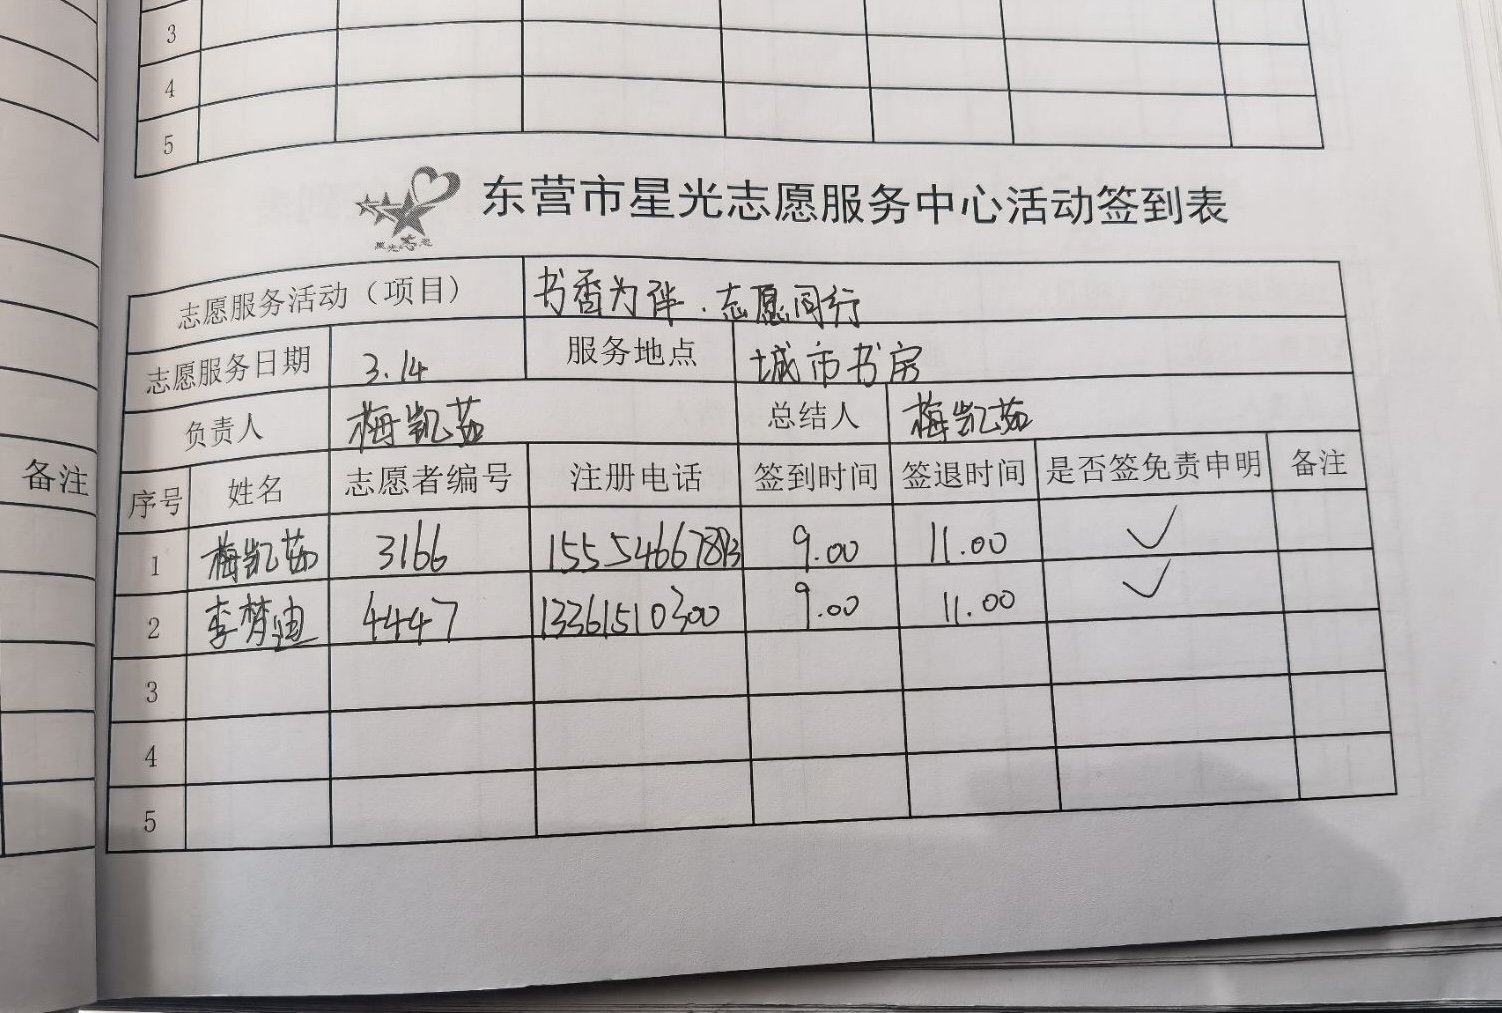 3
4
5
星光志愿
东营市星光志愿服务中心活动签到表
志愿服务活动（项目） 书香为伴.志愿同行
志愿服务日期 3.14 服务地点 城市书房
负责人 梅凯茹 总结人 梅凯茹
备注
序号 姓名 志愿者编号 注册电话 签到时间 签退时间 是否签免责申明 备注
1 梅凯茹 3166 15554667893 9.00 11.00 ✓
2 李梦迪 4447 13361510300 9.00 11.00 ✓
3
4
5